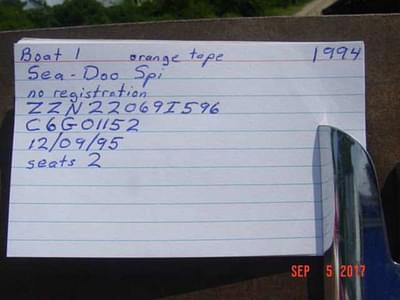 Boat 1 orange tape 1994
Sea-Doo Spi
no registration
ZZN22069I596
C6G01152
12/09/95
seats 2
SEP 5 2017